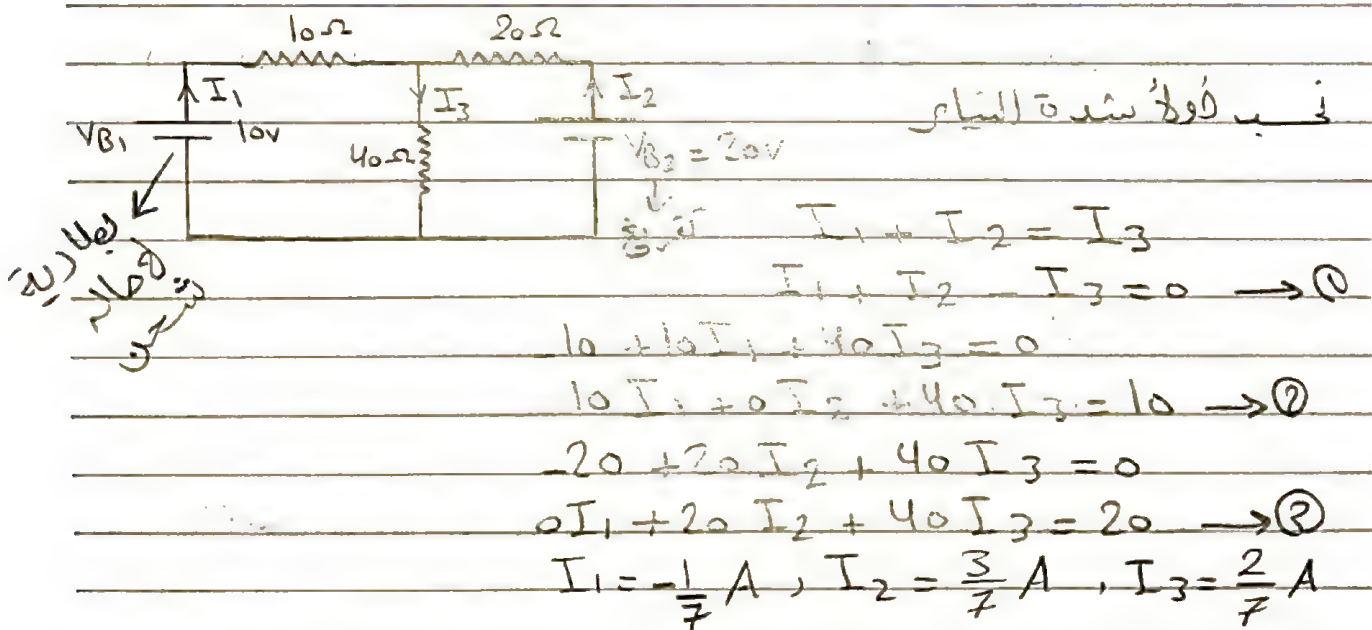 10Ω 20Ω
I₁ I₃ I₂
V_B₁ 10V 40Ω V_B₂ = 20V
تفريغ
بطارية
في حالة
شحن
نحسب أولاً شدة التيار
I₁ + I₂ = I₃
I₁ + I₂ - I₃ = 0 → ①
10 + 10I₁ + 40I₃ = 0
10I₁ + 0I₂ + 40I₃ = 10 → ②
-20 + 20I₂ + 40I₃ = 0
0I₁ + 20I₂ + 40I₃ = 20 → ③
I₁ = -1/7 A, I₂ = 3/7 A, I₃ = 2/7 A